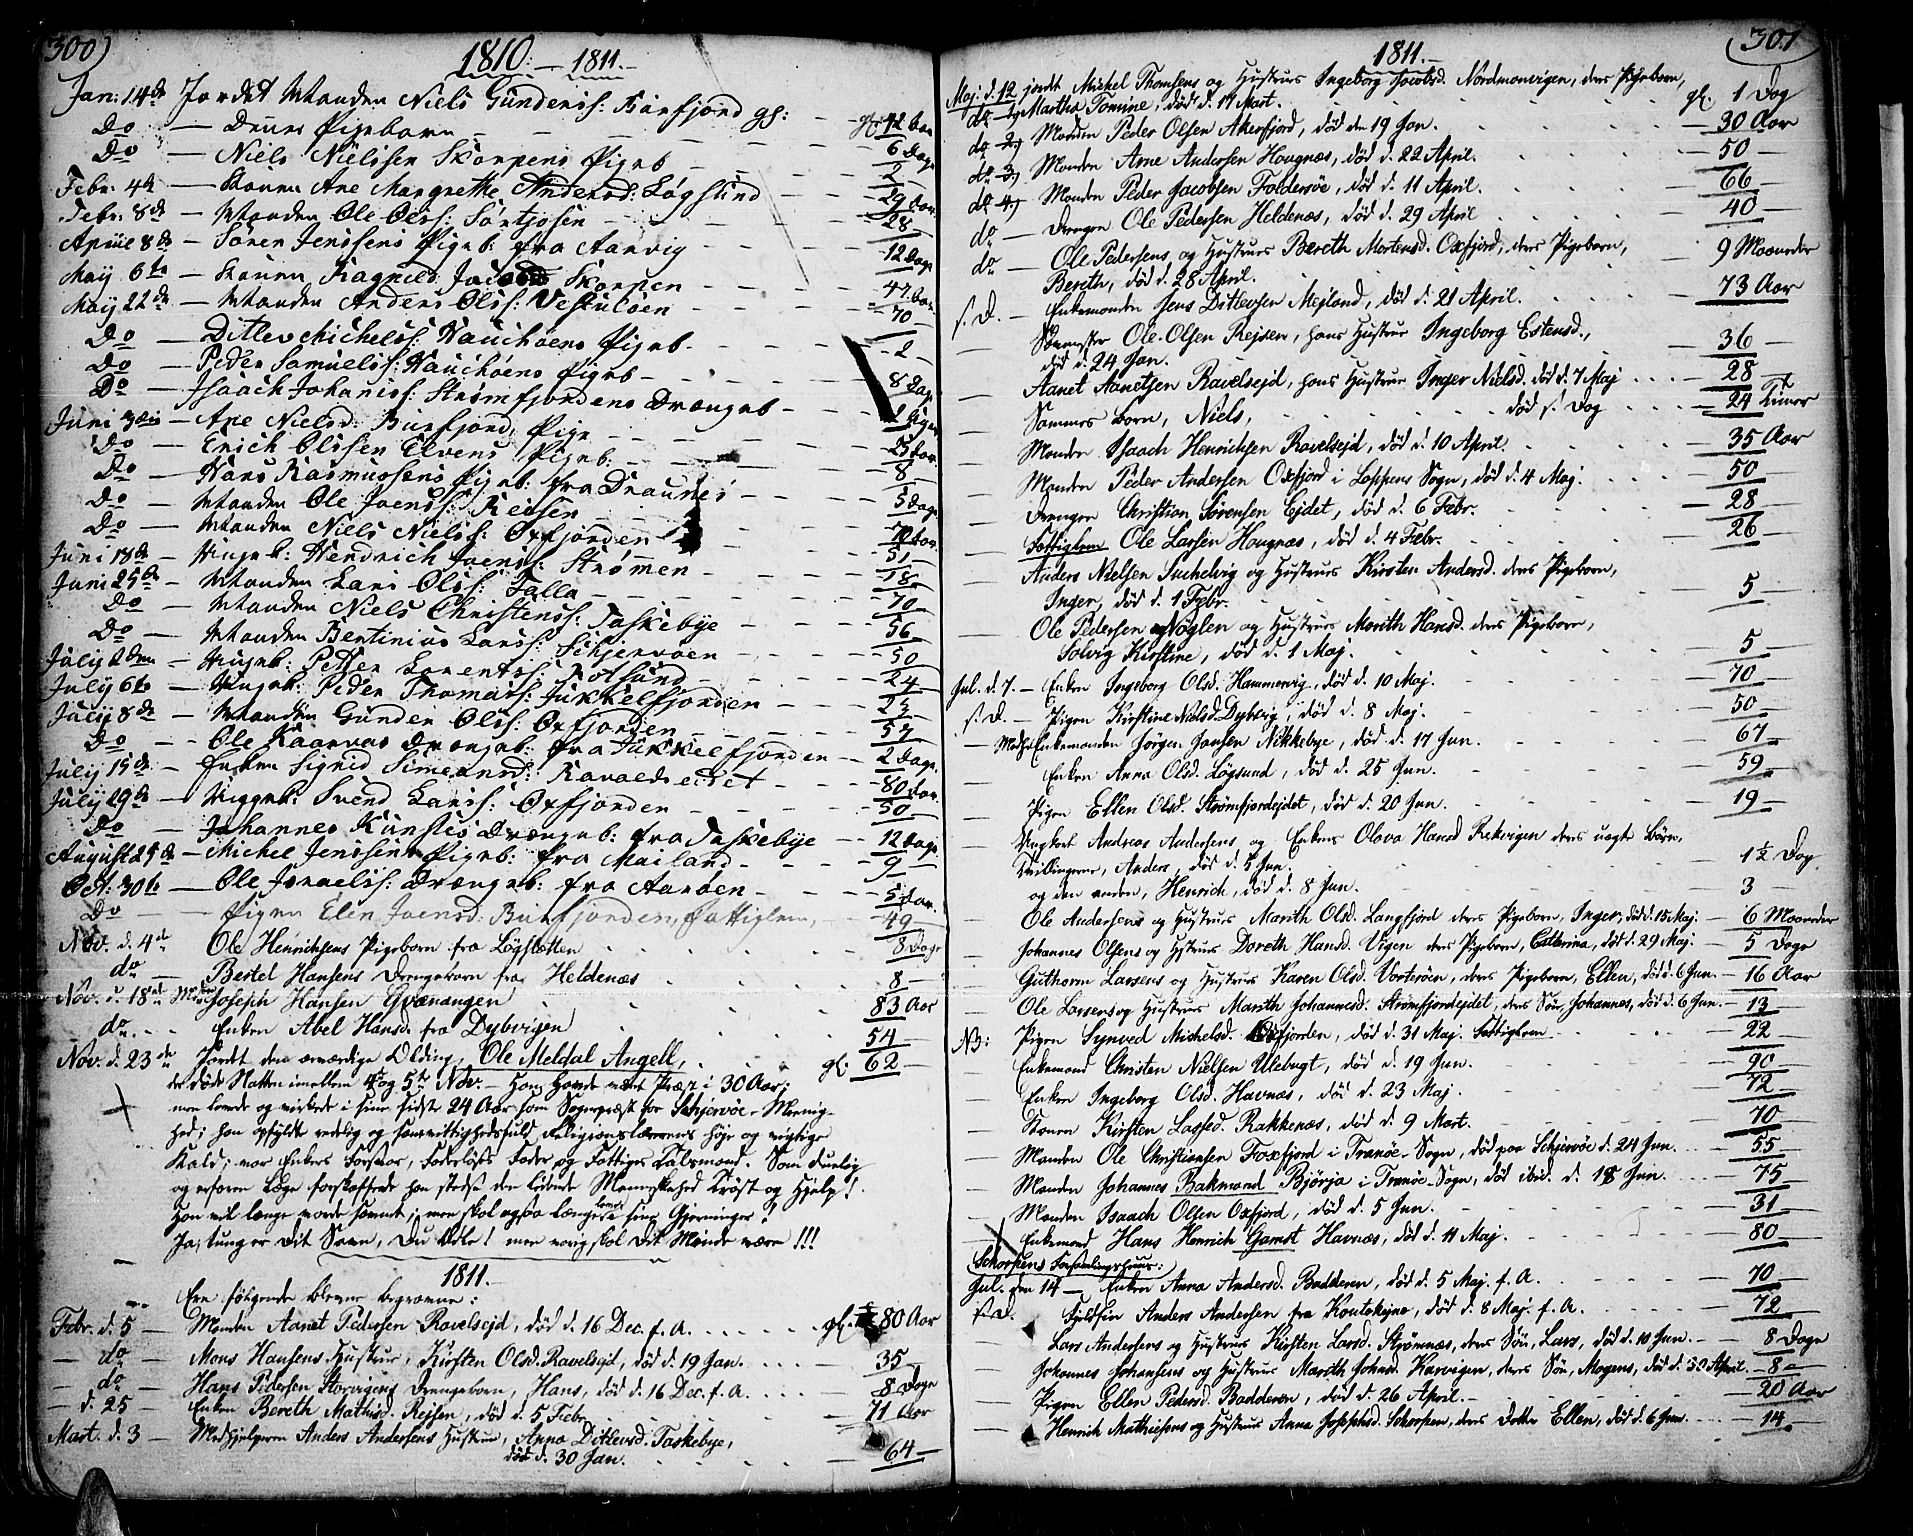 300)
1810. — 1811.
Jan: 14de Jordet Manden Niels Gunders: Burfjord gl: 42 Aar
Do — Deres Pigebarn — 6 Dage
Do — Niels Nielssen Skorpens Pigeb — 2 —
Febr: 4de — Konen Ane Margrethe Andersd: Løgsund — 29 Aar
Febr: 8de — Manden Ole Olss: Sørkjosen — 28
Apriie 8de — Søren Jenssens Pigeb: fra Aarvig — 12 Dage
May 6te — Konen Ragnild Skorpen — 47 Aar
May 22de — Manden Anders Olss: — 70
Do — Ditlev Michelss: Hauchøens Pigeb — 2 —
Do — Peder Samuelss: Hauchøens Pigeb — 8 Dage
Do — Isaach Johanss: Strømfjordens Drængeb —
Juni 3die — Ane Nielsd: Burfjord, Pige — 25 Aar
Do — Erich Olssen Elvens Pigeb: — 8 —
Do — Hans Rasmussens Pigeb: fra — 5 Dage
Do — Manden Ole Joenss: Reisen — 70 Aar
Do — Manden Niels Nielss: Oxfjorden — 51
Juni 18de — Ungk: Hendrich Joenss: Strømen — 18
Juni 25de — Manden Lars Olss: — 70
Do — Manden Niels Christenss: Taskebye — 56
Do — Manden Bertinius Larss: Schjervøen — 50
July 2den — Ungk: Peder Lorentss: Rotsund — 24
July 6te — Ungk: Peder Thomass: Jukkelfjorden — 23
July 8de — Manden Gunder Olss: Oxfjorden — 57
Do — Ole Kaarvas Drængeb: fra Jukkelfjorden — 2 Dage
July 15de — Enken Sigrid Simensd: Ravaldseidet — 80 Aar
July 29de — Ungk: Svend Larss: Oxfjorden — 50
Do — Johannes Kunstes Drængeb: fra Taskebye — 12 Dage
August 25de — Michel Jenssens Pigeb: fra Mailand — 9 —
Oct: 30te — Ole Israelss: Drængeb: fra Aarøen — 5 Aar.
Do — Pigen Elen Joensd: Burfjorden, Fattiglem — 49 —
Nov. d. 4de Ole Henrichsens Pigebarn fra Løgsletten — 8 Dage
do — Bertel Hansens Drengebarn fra Heldenæs — 8 —
Nov. d. 18de Manden Joseph Hansen Qvænangen — 83 Aar
do — Enken Abel Hansd. fra Dybvigen — 54 —
Nov. d. 23de Jordet den ærværdige Olding, Ole Meldal Angell, gl: 62 —
der døde Natten imellem 4de og 5te Nov. — Han havde været Præst i 30 Aar;
men levede og virkede i sine sidste 24 Aar som Sognepræst for Schjervøe-Menig-
hed; han opfyldte redelig og samvittighedsfuld Religionslærerens høje og vigtige
Kald; var Enkers Forsvar, Faderløses Fader og Fattiges Talsmand. Som duelig
og erfaren Læge forskaffede han stedse den lidende Menneskehed Trøst og Hjelp!
Han vil længe vorde savnet; men skal ogsaa længe leve i sine Gjerninger!
Ja, tung er Dit Savn, Du Ædle! men varig skal Dit Minde være!!!
1811.
Ere følgende blevne begravne:
Febr. d. 5 — Manden Aanet Pedersen Ravelsejd, død d. 16 Dec. f. A. gl. 80 Aar
— do — Mons Hansens Hustrue, Kirsten Olsd. Ravelsejd, død d. 19 Jan. 35
— do — Hans Pedersen Storvigens Drengebarn, Hans, død d. 16 Dec. f. A. 8 Dage
— d. 25 — Enken Bereth Mathisd. Rejsen, død d. 5 Febr. 71 Aar
Mart. d. 3 — Medhjelperen Anders Andersens Hustrue, Anna Ditlevsd. Taskebye,
død d. 30 Jan. 64 —
(301
1811.
Maj: d. 12 jordt Mickel Thomsens og Hustrues Ingeborg Jacobsd. Nordmanvigen, deres Pigebarn,
do 1) Martha Tomine, død d. 17 Mart. gl. 1 Dag
do 2) Manden Peder Olsen Akerfjord, død den 19 Jan. — 30 Aar
do 3) Manden Arne Andersen Haugnæs, død d. 22 April. — 50 —
do 4) Manden Peder Jacobsen Foldersøe, død d. 11 April. — 66 —
do — Drengen Ole Pedersen Heldenæs, død d. 29 April — 40 —
do — Ole Pedersens og Hustrues Bereth Mortensd. Oxfjord, deres Pigebarn,
Bereth, død d. 28 April. — 9 Maaneder
s. D. — Enkemanden Jens Ditlevsen Mejland, død d. 21 April. — 73 Aar
— Ole Olsen Rejsen, hans Hustrue Ingeborg Estensd.,
død d. 24 Jan. — 36 —
— Aanet Aanetsen Ravelsejd, hans Hustrue Inger Nielsd. død d. 7 Maj — 28 —
— Sammes Barn, Niels, død s. Dag — 24 Timer
— Manden Isaach Henrichsen Ravelsejd, død d. 10 April. — 35 Aar
— Manden Peder Andersen Oxfjord i Loppens Sogn, død d. 4 Maj. — 50
— Drengen Christian Sørensen Ejdet, død d. 6 Febr. — 28 —
— Fattiglem Ole Larsen Haugnæs, død d. 4 Febr. — 26 —
— Anders Nielsen Suchelvig og Hustrues Kirsten Andersd. deres Pigebarn,
Inger, død d. 1 Febr. — 5 —
— Ole Pedersen Nøglen og Hustrues Marith Hansd. deres Pigebarn,
Solvig Kirstine, død d. 1 Maj. — 5 —
Jul. d. 7. — Enken Ingeborg Olsd. Hammervig, død d. 10 Maj. — 70
s. D. — Pigen Kirstine Nielsd. Dybvig, død d. 8 Maj. — 50 —
— Medhj. Enkemanden Jørgen Jansen Nikkebye, død d. 17 Jun. — 67 —
— Enken Anna Olsd. Løgsund, død d. 25 Jun. — 59
— Pigen Ellen Olsd. Strømfjordejdet, død d. 20 Jun. — 19 —
— Ungkarl Andreas Andersens og Enkens Olava Hansd Rekvigen deres uægte Børn,
Tvillingerne, Anders, død d. 5 Jun. — 1½ Dag
og den anden, Henrich, død d. 8 Jun. — 3 —
— Ole Andersens og Hustrues Marith Olsd. Langfjord deres Pigebarn, Inger, død d. 15 Maj. — 6 Maaneder
— Johannes Olsens og Hustrues Doreth Hansd. Vigen deres Pigebarn, Catterina, død d. 29 Maj. — 5 Dage
— Guthorm Larsens og Hustrues Karen Olsd. Vorterøen, deres Pigebarn, Ellen, død d. 6 Jun. — 16 Aar
— Ole Larsens og Hustrues Marith Johannesd. Strømfjordejdet, deres Søn, Johannes, død d. 6 Jun. — 13 —
NB: Pigen Synved Michelsd. Oxfjorden, død d. 31 Maj. Fattiglem — 22 —
— Enkemand Christen Nielsen Ulebugt, død d. 19 Jun. — 90 —
— Enken Ingeborg Olsd. Havnæs, død d. 23 Maj. — 72 —
— Konen Kirsten Lassed. Rakkenæs, død d. 9 Mart. — 70
— Manden Ole Christiansen Foxfjord i Tranøe-Sogn, død paa Schjervøe d. 24 Jun. — 55 —
— Manden Johannes Bakmand Bjørja i Tranøe-Sogn, død ibid. d. 18 Jun. — 75 —
— Manden Isaach Olsen Oxfjord, død d. 5 Jun. — 31
— Enkemand Hans Henrich Gamst Havnæs, død d. 11 Maj. — 80 —
Schorpens Forsamlingshuus:
Jul. den 14 — Enken Anna Andersd. Badderen, død d. 5 Maj. f. A. — 70 —
s. D. Fjeldfin Anders Andersen fra Koutokejno, død d. 8 Maj. f. A. — 72 —
— Lars Andersens og Hustrues Kirsten Larsd. Strømnæs, deres Søn, Lars, død d. 10 Jun. — 8 Dage
— Johannes Johansens og Hustrues Marith Johansd. Karvigen, deres Søn, Mogens, død d. 30 April. — 8 —
— Pigen Ellen Pedersd. Badderen, død d. 26 April. — 20 Aar
— Henrich Mathiesens og Hustrues Anna Josephsd. Schorpen, deres Datter Ellen, død d. 6 Jun. — 14 —